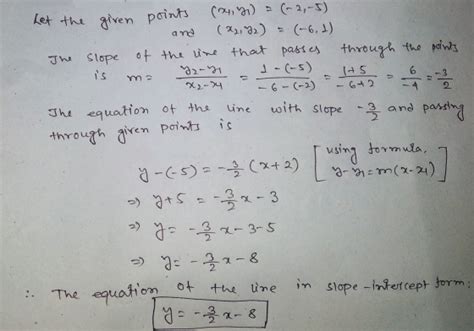 Let the given points (x₁, y₁) = (-2, -5)
and (x₂, y₂) = (-6, 1)
The slope of the line that passes through the points
is m = \frac{y₂-y₁}{x₂-x₁} = \frac{1-(-5)}{-6-(-2)} = \frac{1+5}{-6+2} = \frac{6}{-4} = \frac{-3}{2}
The equation of the line with slope -\frac{3}{2} and passing
through given points is
y-(-5) = -\frac{3}{2} (x+2) [using formula, y-y₁=m(x-x₁)]
⇒ y+5 = -\frac{3}{2}x - 3
⇒ y = -\frac{3}{2}x - 3 - 5
⇒ y = -\frac{3}{2}x - 8
∴ The equation of the line in slope-intercept form:
y = -\frac{3}{2}x - 8